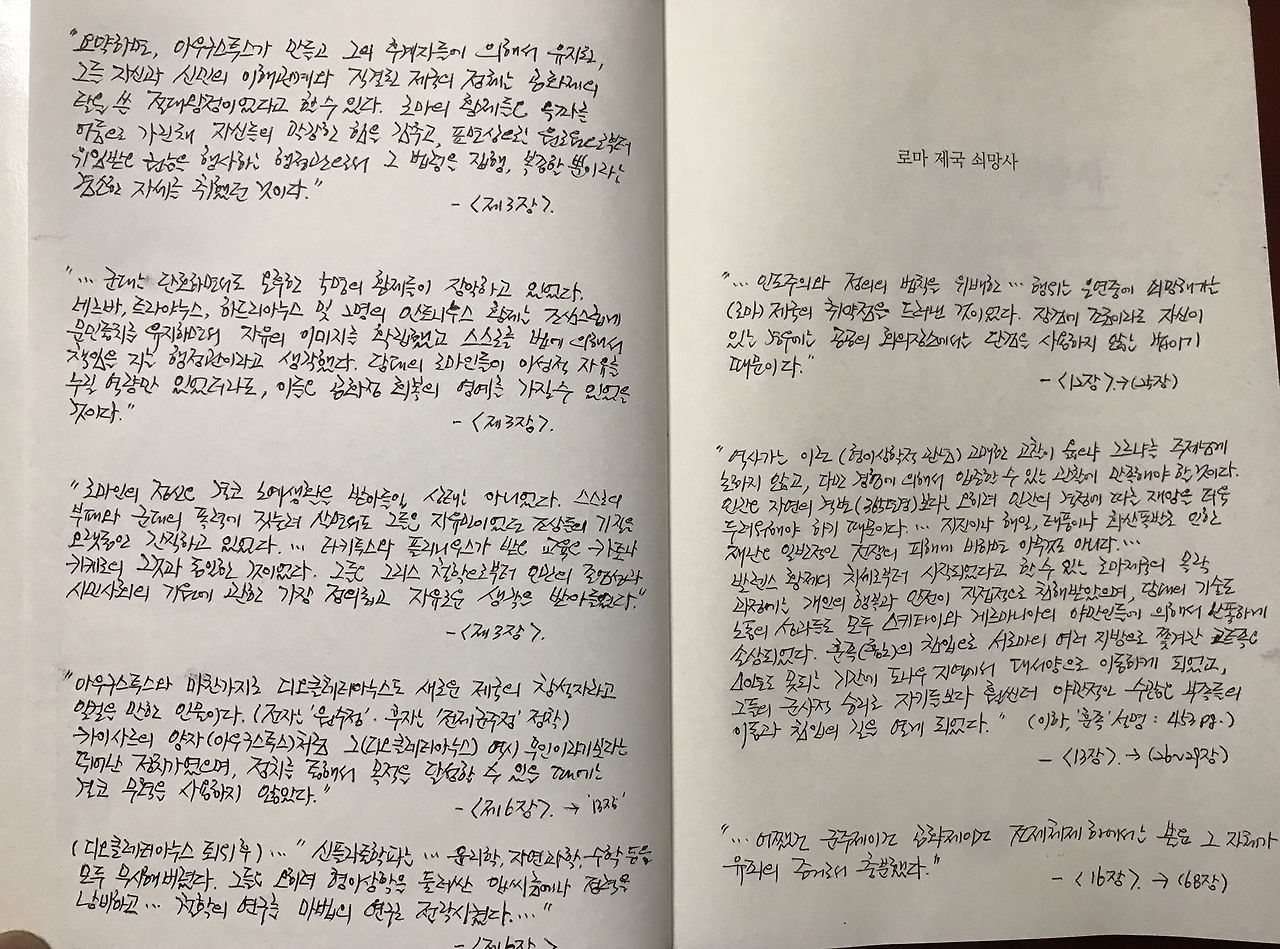 "요약하면, 아우구스투스가 만들고 그의 후계자들에 의해서 유지된,
그들 자신과 신민의 이해관계와 직결된 제국의 정체는 공화제의
탈을 쓴 절대왕정이었다고 할 수 있다. 로마의 황제들은 옥좌를
어둠으로 가린채 자신들의 막강한 힘을 감추고, 표면상으로는 원로원으로부터
위임받은 권능을 행사하는 행정관으로서 그 법령을 집행, 복종할 뿐이라는
겸손한 자세를 취했던 것이다."
- <제3장>.
"... 군대는 단호하면서도 온후한 4명의 황제들이 장악하고 있었다.
네르바, 트라야누스, 하드리아누스 및 2명의 안토니우스 황제는 조심스럽게
문민통치를 유지하면서 자유의 이미지를 확립했고 스스로를 법에 의해서
책임을 지는 행정관이라고 생각했다. 당대의 로마인들이 이성적 자유를
누릴 역량만 있었더라도, 이들은 공화정 회복의 영예를 가질 수 있었을
것이다."
- <제3장>.
"로마인의 정신은 결코 노예생활을 받아들일 상태는 아니었다. 스스로의
부패와 군대의 폭력에 짓눌려 살면서도 그들은 자유민이었던 조상들의 기질을
오랫동안 간직하고 있었다. ... 타키투스와 플리니우스가 받은 교육은 카토나
키케로의 그것과 동일한 것이었다. 그들은 그리스 철학으로부터 인간의 존엄성과
시민사회의 기원에 관한 가장 정의롭고 자유로운 생각을 받아들였다."
- <제3장>.
"아우구스투스와 마찬가지로 디오클레티아누스도 새로운 제국의 창설자라고
일컬을 만한 인물이다. (전자는 '원수정'· 후자는 '전제군주정' 정착)
카이사르의 양자(아우구스투스)처럼 그(디오클레티아누스) 역시 무인이라기보다는
뛰어난 정치가였으며, 정치를 통해서 목적을 달성할 수 있을 때에는
결코 무력을 사용하지 않았다."
- <제6장>. → '13장'
(디오클레티아누스 퇴위 후) ... "신플라톤학파는 ... 윤리학, 자연과학, 수학 등을
모두 무시해 버렸다. 그들은 오히려 형이상학을 둘러싼 말씨름에나 정력을
낭비하고 ... 철학의 연구를 마법의 연구로 전락시켰다...."
로마 제국 쇠망사
"... 인도주의와 정의의 법칙을 위배한 ... 행위는 은연중에 쇠망해가는
(로마) 제국의 취약점을 드러낸 것이었다. 장검에 관하여라도 자신이
있는 경우에는 공공의 회의장소에서는 단검을 사용하지 않는 법이기
때문이다."
- <12장>.→(25장)
"역사가는 이런 (형이상학적 관념) 고매한 고찰이 옳으냐 그르냐는 주제넘게
논하지 않고, 다만 경험에 의해서 입증할 수 있는 관찰에 만족해야 할 것이다.
인간은 자연의 격변(365년경)보다는 오히려 인간의 격정에 따른 재앙을 더욱
두려워해야 하기 때문이다. ... 지진이나 해일, 태풍이나 화산폭발로 인한
재난은 일반적인 전쟁의 피해에 비하면 아무것도 아니다. ...
발렌스 황제의 치세로부터 시작되었다고 할 수 있는 로마제국의 몰락
과정에는 개인의 행복과 안전이 직접적으로 침해받았으며, 당대의 기술도
노동의 성과들도 모두 스키타이와 게르마니아의 야만인들에 의해서 난폭하게
손상되었다. 훈족(흉노)의 침입으로 서로마의 여러 지방으로 쫓겨간 고트족은
40년도 못되는 기간에 도나우 지역에서 대서양으로 이동하게 되었고,
그들의 군사적 승리로 자기들보다 훨씬 더 야만적인 수많은 부족들의
이동과 침입의 길을 열게 되었다." (이하, '훈족' 설명 : 453 pg.)
- <13장>. → (26~29장)
"... 어쨌건 군주제이건 공화제이건 전제체제하에서는 분묘 그 자체가
유죄의 증거로서 충분했다."
- <16장>. → (68장)